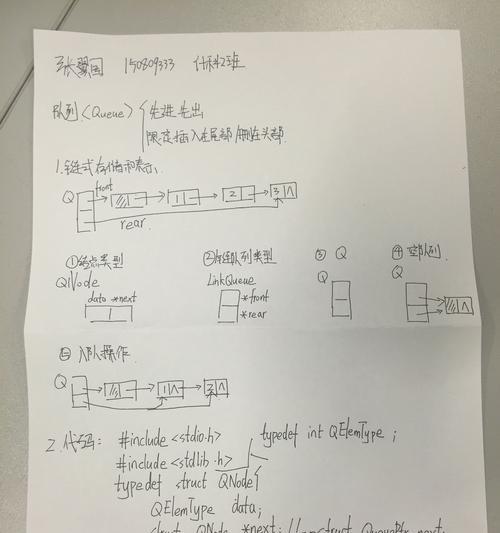 张翼国 150809333 计科2班
队列<Queue> { 先进先出
限定插入在尾部/删在头部.
1.链式存储和表示.
Q front 1 2 3 ∧
rear
①结点类型 ②链队列类型 ③ Q ④空队列.
QNode LinkQueue Q Q
data *next *front
*rear ∧
㊁入队操作.
Q 1 ∧ 2 ∧
2.代码: #include <stdio.h> typedef int QElemType ;
#include <stdlib.h>
typedef struct QNode{
QElemType data;
struct QNode *next; // struct QueuePtr next